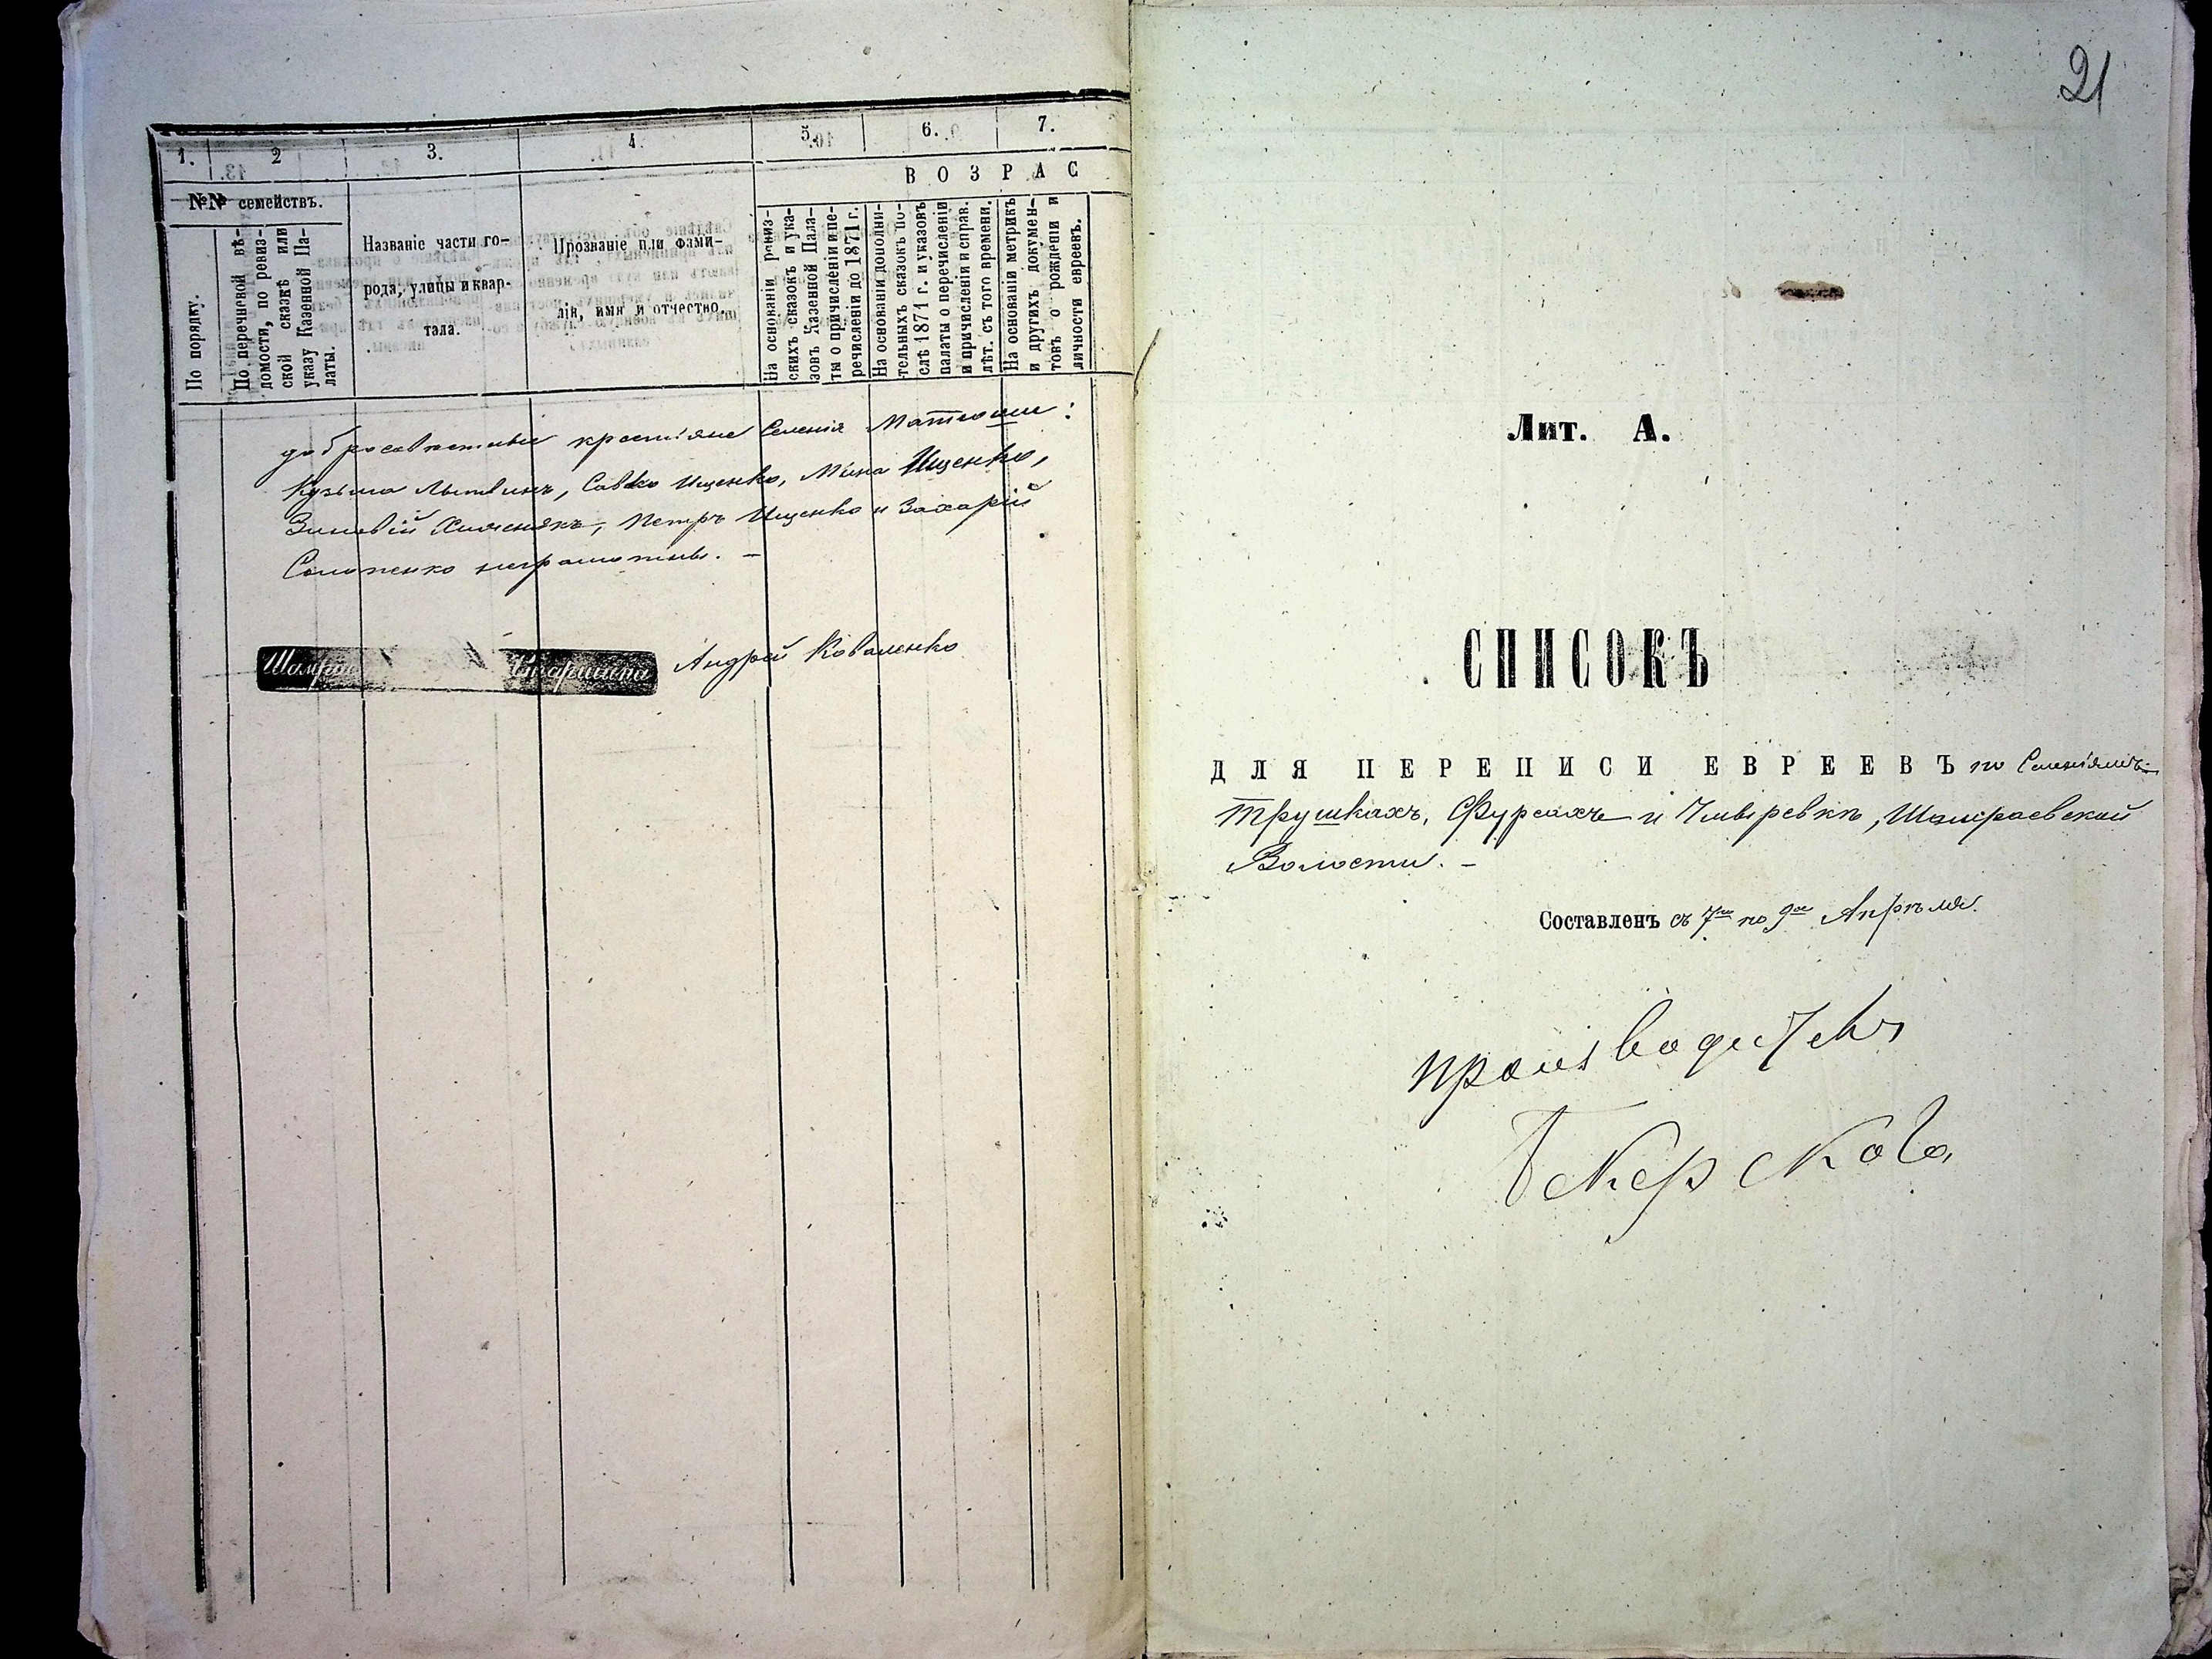 1.
2
3.
4.
5.
6.
7.
ВОЗРАС
№№ семействъ.
По порядку.
По перечневой вѣ-
домости, по ревиз-
ской сказкѣ или
указу Казенной Па-
латы.
Названіе части го-
рода, улицы и квар-
тала.
Прозваніе или фами-
лія, имя и отчество.
На основаніи ревиз-
скихъ сказокъ и ука-
зовъ Казенной Пала-
ты о причисленіи и пе-
речисленіи до 1871 г.
На основаніи дополни-
тельныхъ сказокъ по-
слѣ 1871 г. и указовъ
палаты о перечисленіи
и причисленіи и справ.
лѣт. съ того времени.
На основаніи метрикъ
и другихъ докумен-
товъ о рожденіи и
личности евреевъ.
добросовѣстные крестьяне Селенія Матюши:
Кузьма Литвинъ, Савко Ищенко, Мина Ищенко,
Зиновій, Петръ Ищенко и Захарій
неграмотны. –
Старшина Андрей Коваленко
21
Лит. А.
СПИСОКЪ
ДЛЯ ПЕРЕПИСИ ЕВРЕЕВЪ по Селеніямъ:
Трушкахъ, Фурсахъ и Чмыревкѣ, Шамраевской
Волости. –
Составленъ съ 7го по 9ое Апрѣля.
производитель